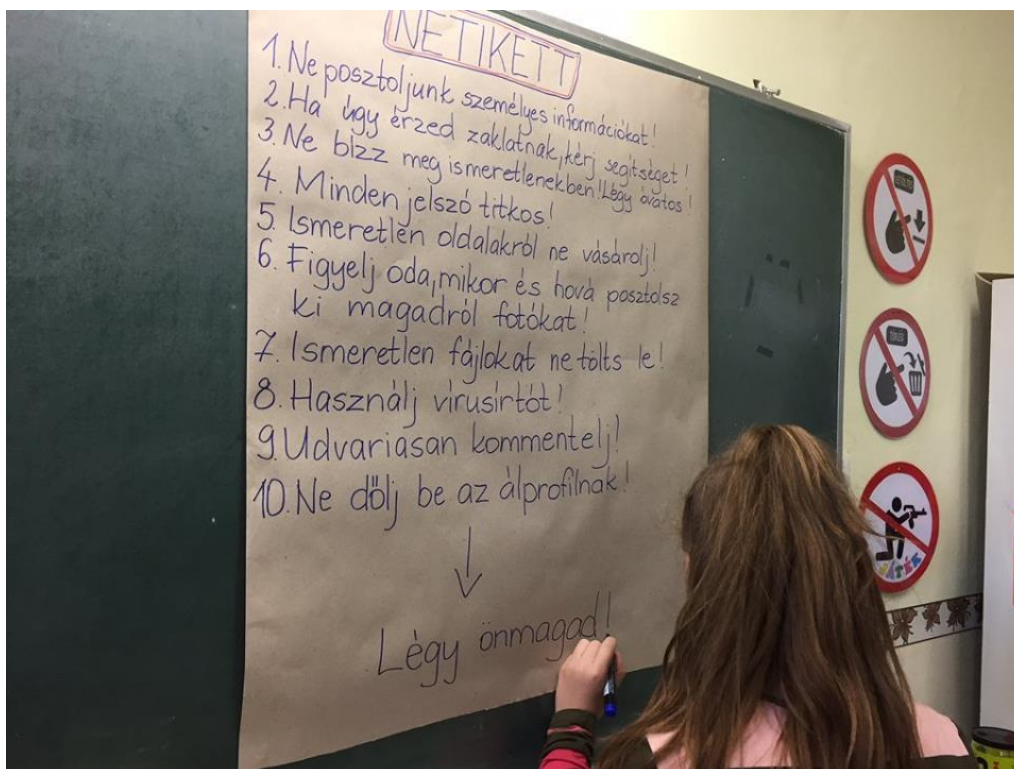 NETIKETT
1. Ne posztoljunk személyes információkat!
2. Ha úgy érzed zaklatnak, kérj segítséget!
3. Ne bízz meg ismeretlenekben! Légy óvatos!
4. Minden jelszó titkos!
5. Ismeretlen oldalakról ne vásárolj!
6. Figyelj oda, mikor és hová posztolsz
ki magadról fotókat!
7. Ismeretlen fájlokat ne tölts le!
8. Használj vírusírtót!
9. Udvariasan kommentelj!
10. Ne dőlj be az álprofilnak!
Légy önmagad!
JÁTÉK